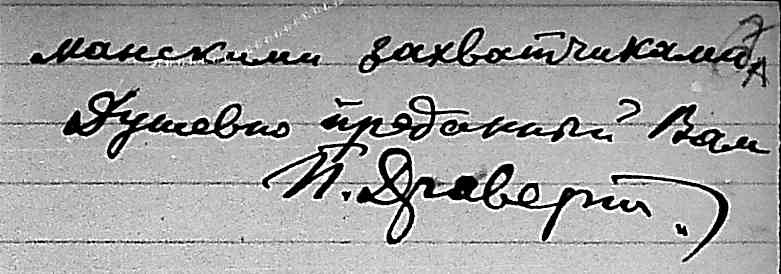 манскими захватчиками
Душевно преданный Вам
П. Драверт